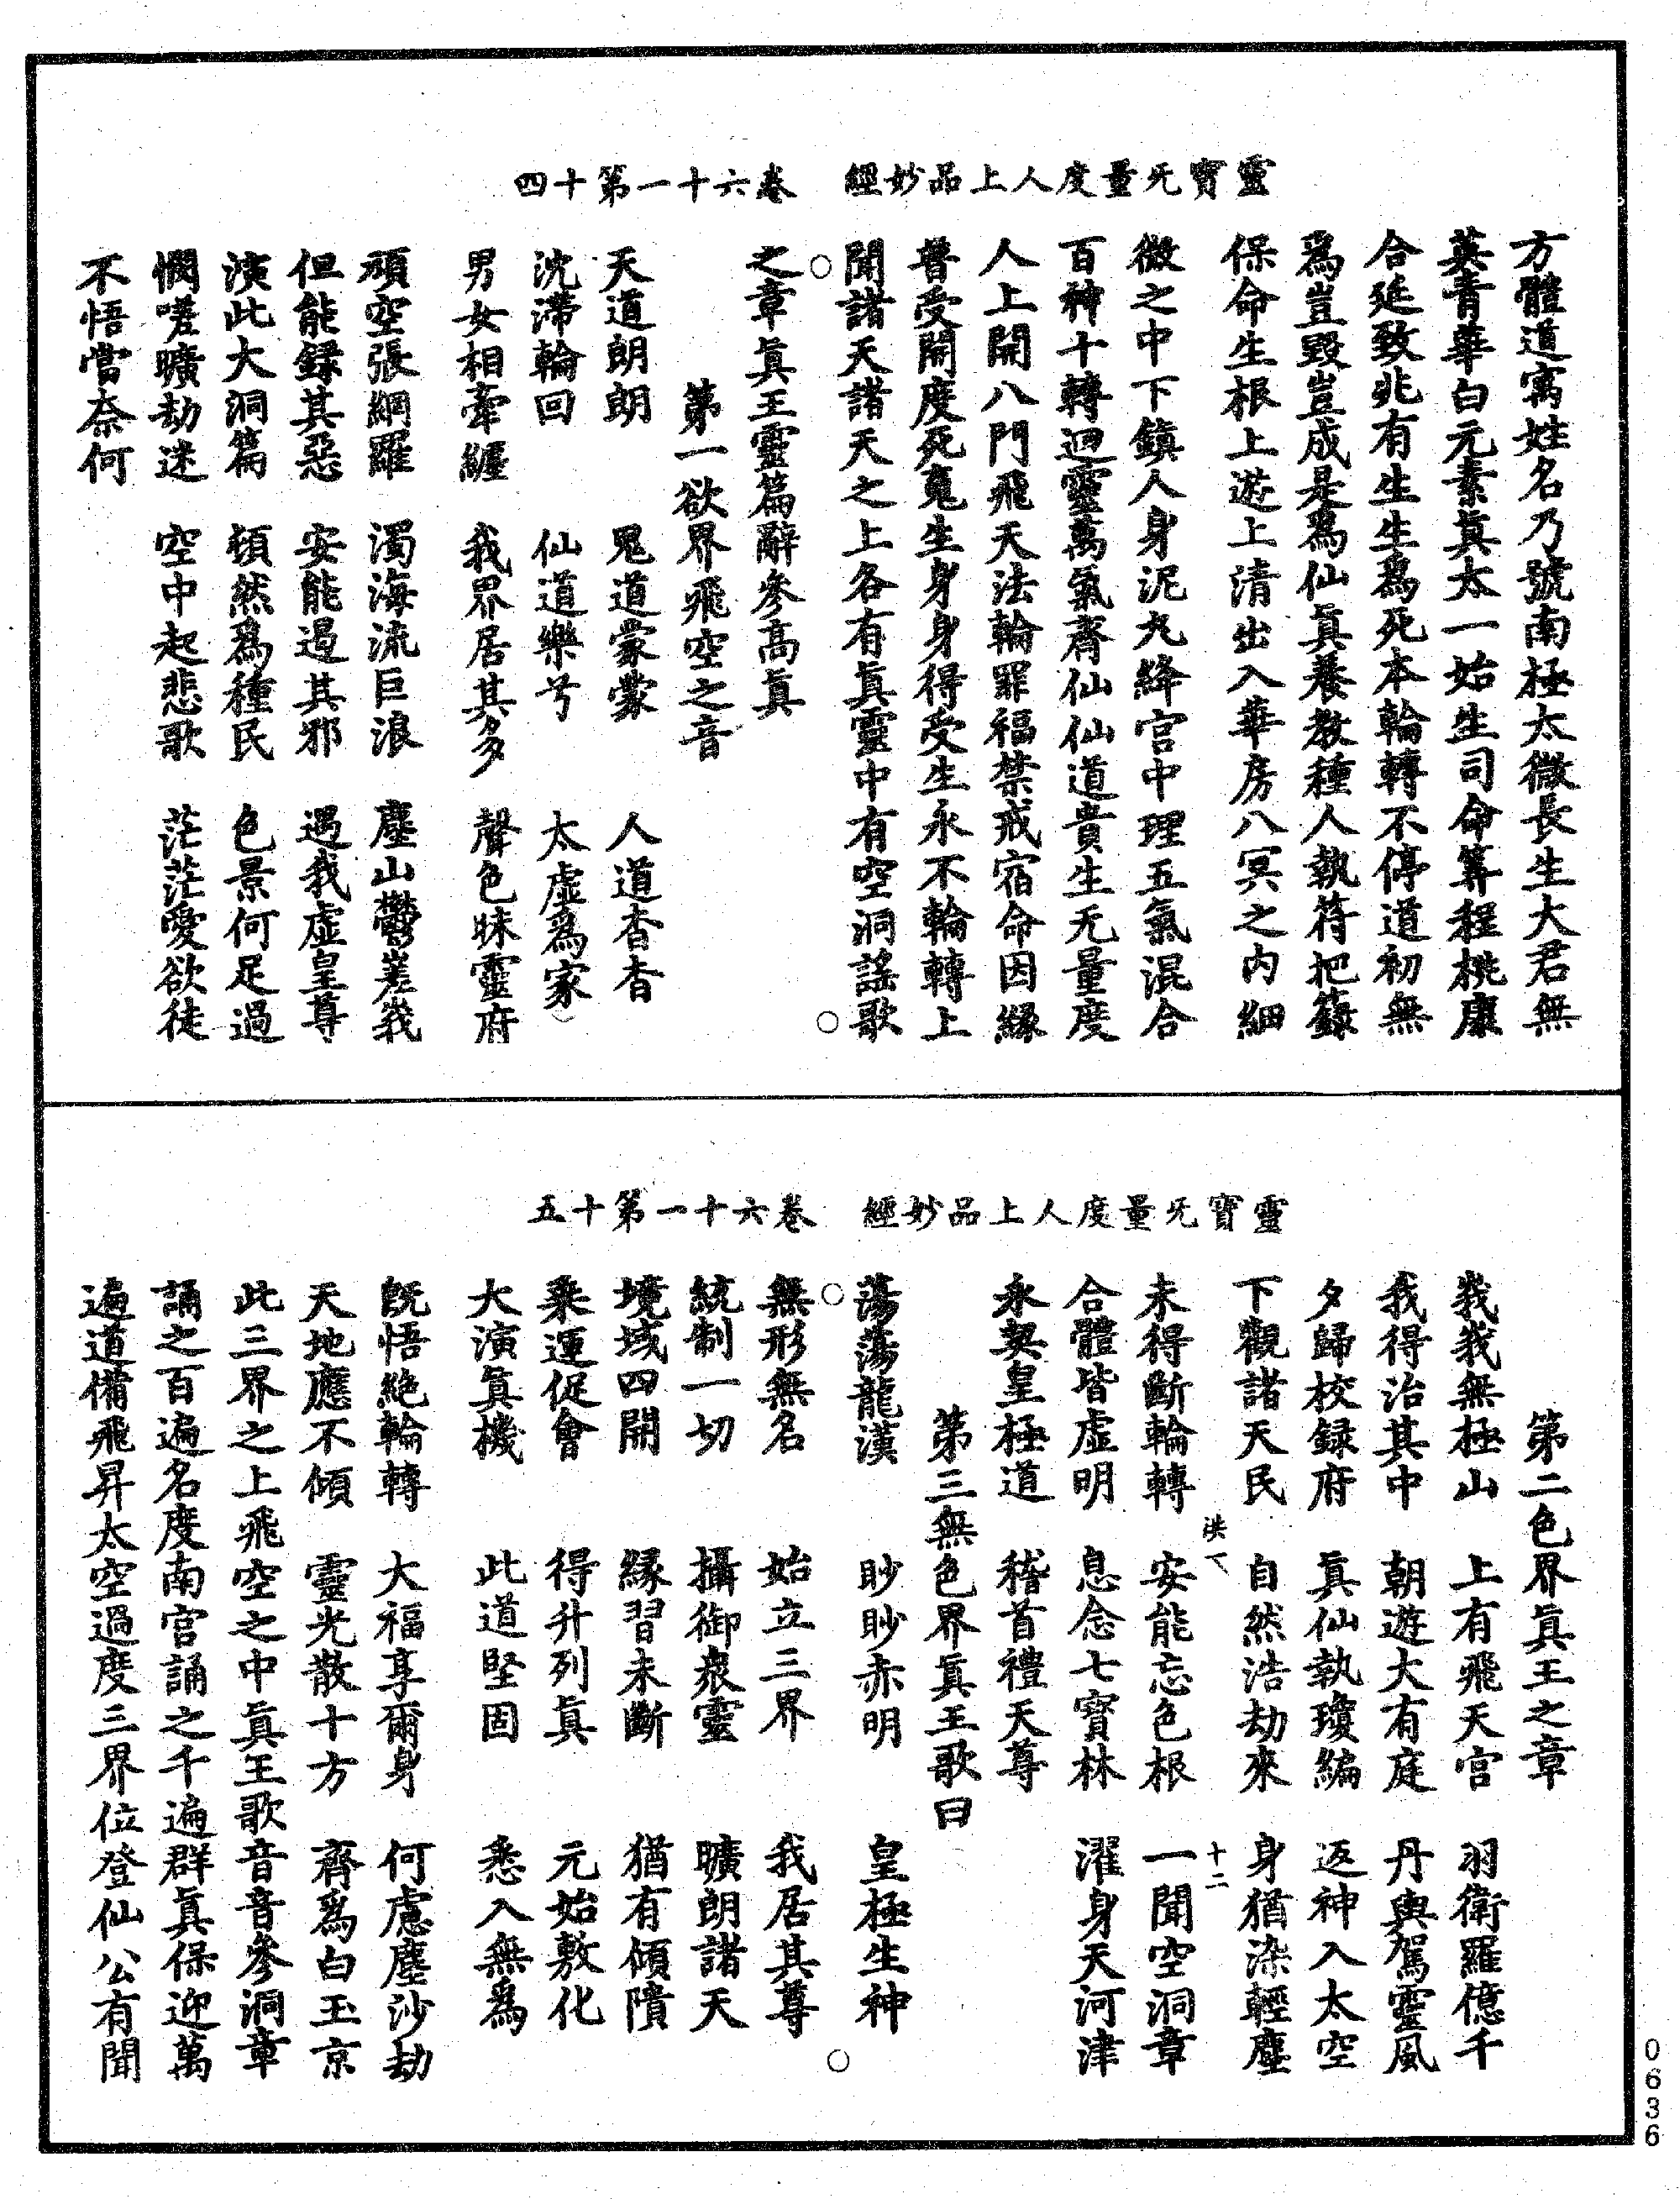 靈寶无量度人上品妙經　卷六十一第十四
方體道寓姓名乃號南極太微長生大君無
英青華白元素真太一始生司命筭程桃康
合延致兆有生生為死本輪轉不停道初無
為豈毀豈成是為仙真養教種人執符把籙
保命生根上遊上清出入華房八冥之內細
微之中下鎮人身泥丸絳宮中理五氣混合
百神十轉迴靈萬氣齊仙仙道貴生无量度
人上開八門飛天法輪罪福禁戒宿命因緣
普受開度死魂生身身得受生永不輪轉上
聞諸天諸天之上各有真靈中有空洞謠歌
之章真王靈篇辭參高真
第一欲界飛空之音
天道朗朗　鬼道蒙蒙　人道杳杳
沈滯輪回　仙道樂兮　太虛為家
男女相牽纏　我界居其多　聲色昧靈府
頑空張綱羅　濁海流巨浪　塵山鬱嵳峩
但能錄其惡　安能遏其邪　遇我虛皇尊
演此大洞篇　頓然為種民　色景何足過
憫嗟曠劫迷　空中起悲歌　茫茫愛欲徒
不悟當奈何
靈寶无量度人上品妙經　卷六十一第十五
第二色界真王之章
峩峩無極山　上有飛天宮　羽衛羅億千
我得治其中　朝遊大有庭　丹輿駕靈風
夕歸校錄府　真仙執瓊編　返神入太空
下觀諸天民　自然浩劫來　身猶染輕塵
洪八　十二
未得斷輪轉　安能忘色根　一聞空洞章
合體皆虛明　息念七寶林　濯身天河津
永契皇極道　稽首禮天尊
第三無色界真王歌曰
蕩蕩龍漢　眇眇赤明　皇極生神
無形無名　始立三界　我居其尊
統制一切　攝御衆靈　曠朗諸天
境域四開　緣習未斷　猶有傾隤
乘運促會　得升列真　元始敷化
大演真機　此道堅固　悉入無為
既悟絕輪轉　大福享爾身　何慮塵沙劫
天地應不傾　靈光散十方　齊為白玉京
此三界之上飛空之中真王歌音音參洞章
誦之百遍名度南宮誦之千遍群真保迎萬
遍道備飛昇太空過度三界位登仙公有聞
0636